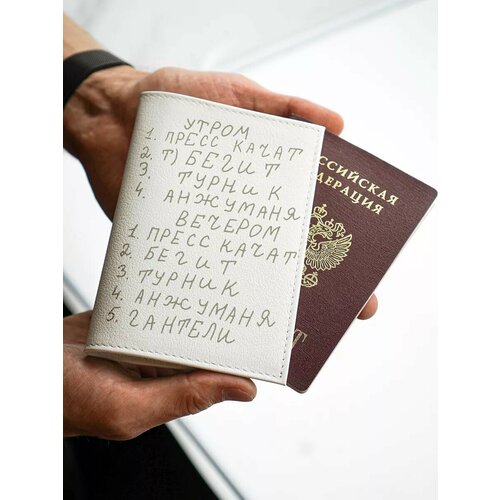 УТРОМ
1. ПРЕСС КАЧАТ
2. Т) БЕГИТ
3. ТУРНИК
4. АНЖУМАНЯ
ВЕЧЕРОМ
1 ПРЕСС КАЧАТ
2. БЕГИТ
3 ТУРНИК
4. АНЖУМАНЯ
5. ГАНТЕЛИ
ССИЙСКАЯ
ДЕРАЦИЯ
Т